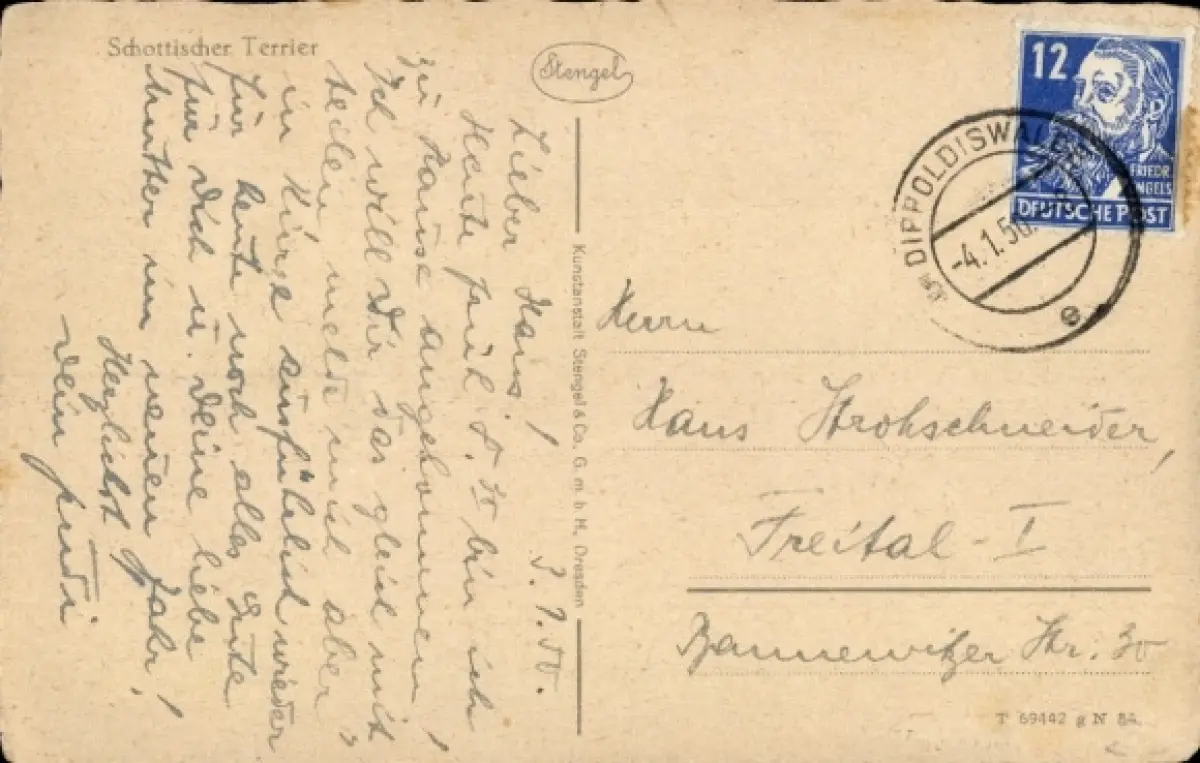 Schottischer Terrier
Stengel
Lieber Hans!
3.1.50.
Heute früh bin ich
zu Hause angekommen!
Ich will Dir das gleich mit-
teilen, melde mich aber
in Kürze ausführlich wieder
für heute noch alles Gute
für Dich u. Deine liebe
Mutter im neuen Jahr!
Herzlichst
Dein
Kunstanstalt Stengel & Co. G. m. b. H. Dresden
12
FRIEDR.
ENGELS
DEUTSCHE POST
DIPPOLDISWALDE
-4.1.50.
e
Herrn
Hans Strohschneider,
Freital - I
Bannewitzer Str. 30
T 69442 g N 84.